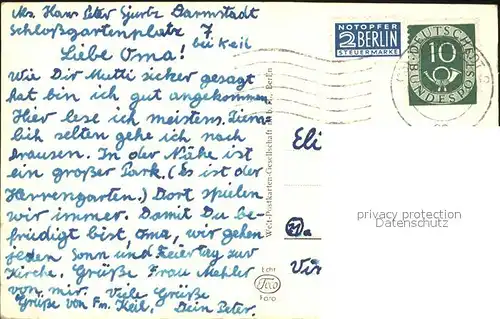 Abs. Hans Peter Gjurtz Darmstadt
Schloßgartenplatz 7
bei Keil
Liebe Oma!
Wie Dir Mutti sicker gesagt
hat bin ich gut angekommen
Hier lese ich meistens. Ziem
lich selten gehe ich nach
drausen. In der Nähe ist
ein großer Park. (Es ist der
Herrengarten.) Dort spielen
wir immer. Damit Du be-
friedigt bist, Oma, wir gehen
jeden Sonn und Feiertag zur
Kirche. Grüße Frau Mehler
von mir. Viele Grüße
Grüße von Fm. Keil, Dein Peter.
NOTOPFER
2 BERLIN
STEUERMARKE
DEUTSCHE BUNDESPOST
10
Welt-Postkarten-Gesellschaft m.b.H., Berlin
Echt
Foto
Eli
Vir
privacy protection
Datenschutz